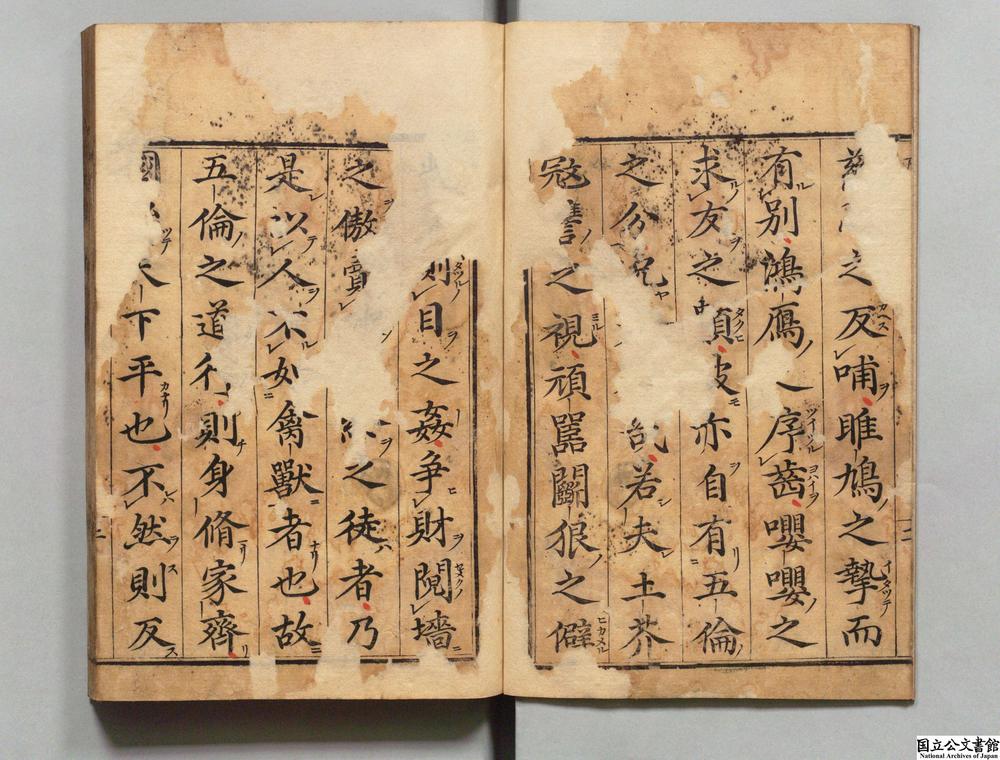 之反哺雎鳩之摯而
有別鴻鴈序齒嚶嚶之
求友之類皮亦自有五倫
之分若夫土芥
冦讎之視頑嚚鬪狠之僻
則目之姦爭財鬩墻
之傲之徒者乃
是以人不如禽獸者也故
五倫之道行則身脩家齊
國下平也不然則反
国立公文書館
National Archives of Japan